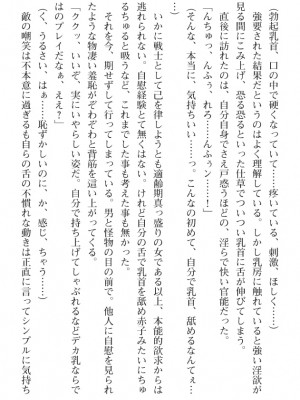 (勃起乳首、口の中で硬くなっていて……疼いている、刺激、ほしく……)
強要された結果だというのはよく理解している。しかし乳房に触れていると強い淫欲が
見る間にこみ上げ、恐る恐るといった仕草でついつい乳首に舌が伸びてしまう。
直後に訪れたのは、自分自身でさえ戸惑うほどの、淫らで快い官能だった。
「んちゅっ、んふぅ、れろ……んふぅン……！」
(そんな、本当に、気持ちいい……っ。こんなの初めて、自分で乳首、舐めるなんてぇ…
…)
いかに戦士として己を律しようとも適齢期真っ盛りの女である以上、本能的欲求からは
逃れられない。自慰経験とて無くはない。けれど自分の舌で乳首を舐め赤子みたいにちゅ
ちゅると吸うなど、これまでした事も考えた事も無かった。
それを今、期せずして行ってしまっている。男と怪物の目の前で。他人に自慰を見られ
たような物凄い羞恥がぞわぞわと背筋を這い上がってくる。
「ククッ、いいぞ、実にいやらしい姿だ。自分で持ち上げてしゃぶれるなどデカ乳ならで
はのプレイだなぁ、ええ？」
(く、うるさい、はぁ……恥ずかしいのに、か、感じ、ちゃう……)
敵の嘲笑は不本意に過ぎるも自らの舌の不慣れな動きは正直に言ってシンプルに気持ち